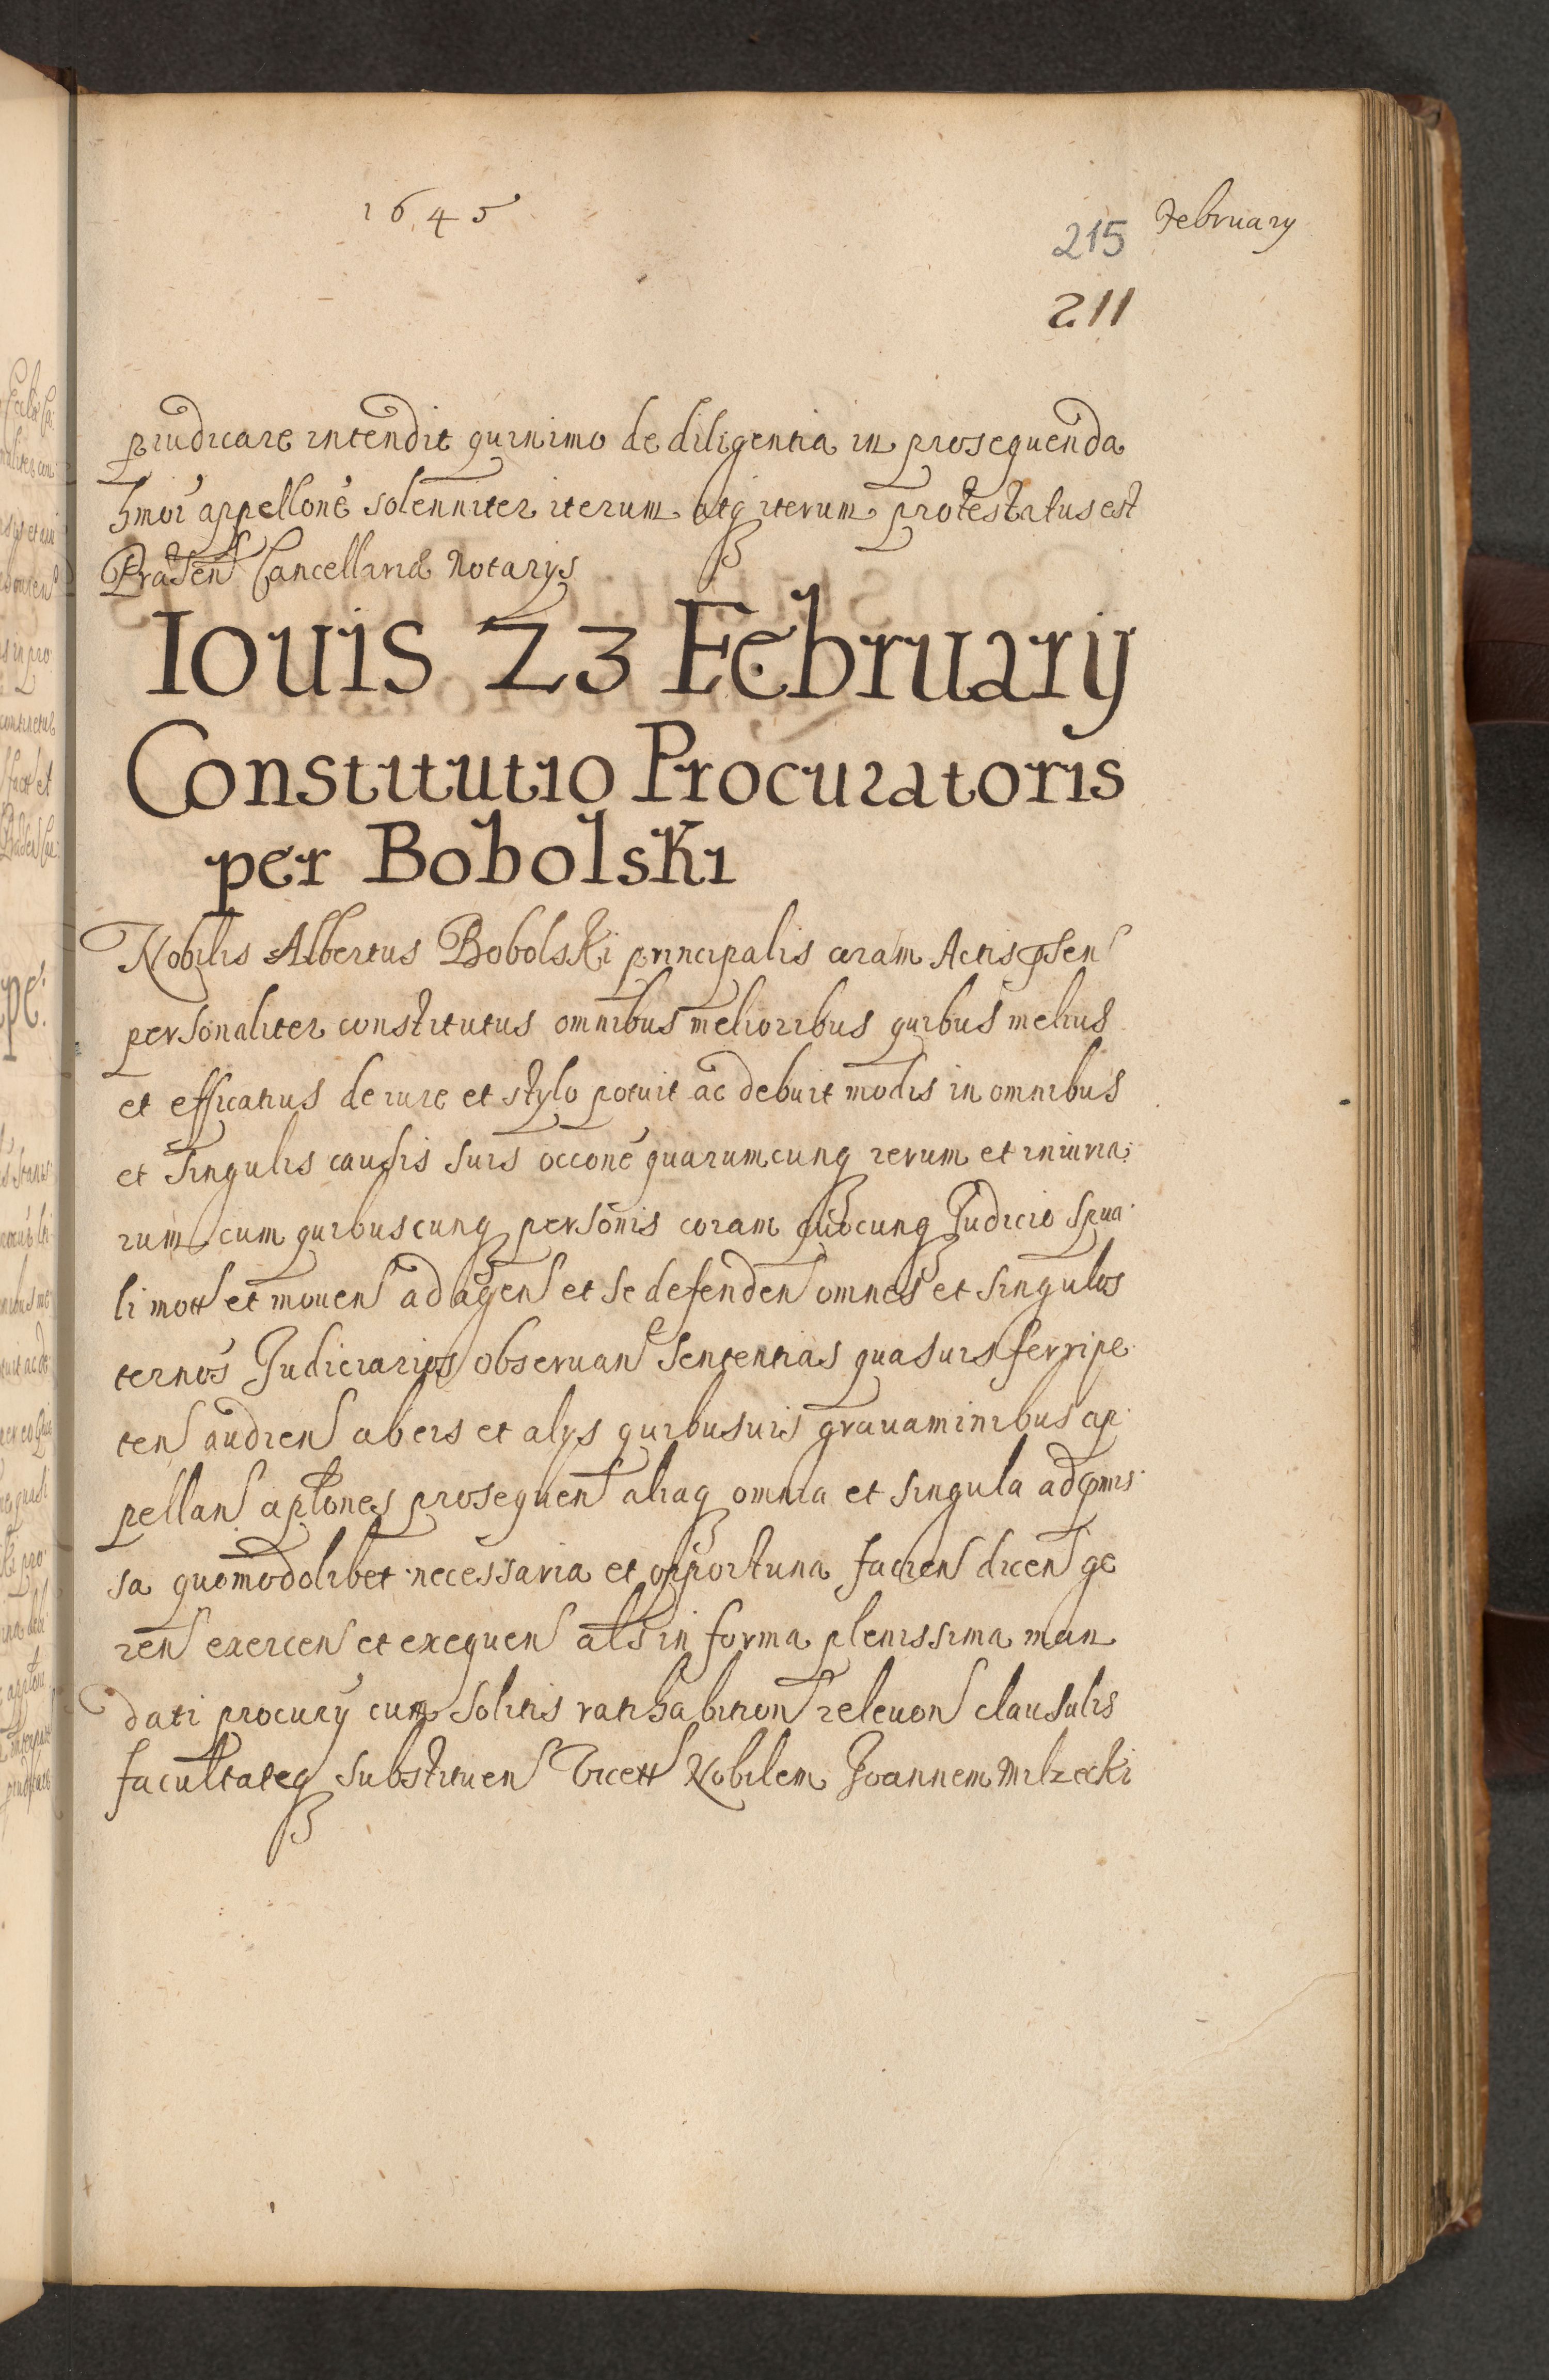 1645
February
215
211
pіudicare intendit quinimo de diligentia in prosequenda
hmoi appellone solenniter iterum atq iterum protestatus est
Præsen Cancellariæ Notarys
Iouis 23 February
Constitutio Procuratoris
per Bobolski
Nobilis Albertus Bobolski principalis coram Actis psen
personaliter constitutus omnibus melioribus quibus melius
et efficatius de iure et stylo potuit ac debuit modis in omnibus
et singulis causis suis occone quarumcunq rerum et iniuria:
rum cum quibuscunq personis coram quocunq Judicio spua:
li mott et mouen ad agen et se defenden omnes et singulos
ternos Judiciarios obseruan sententias quasuis ferri pe:
ten audien ab eis et alys quibusuis grauaminibus ap:
pellan aplones prosequen aliaq omnia et singula ad pmis:
sa quomodolibet necessaria et opportuna facien dicen ge
ren exercen et exequen als in forma plenissima man
dati procury cum solitis ratihabition releuon clausulis
facultateq substituen Vicett Nobilem Joannem Milzecki